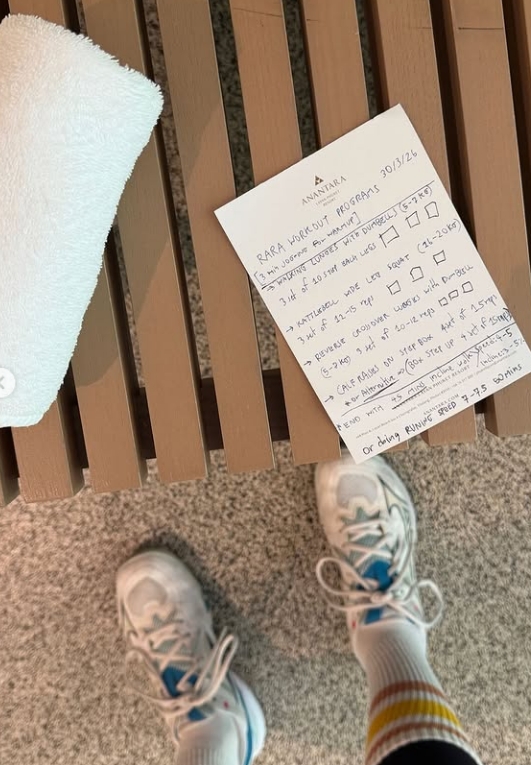 ANANTARA
30/3/26
RARA WORKOUT PROGRAMS
[3 min JOGGING FOR WARMUP]
→ WALKING LUNGES WITH DUMBELLS (5-7 KG)
3 set of 10 STEP EACH LEGS
→ KATTLEBELL WIDE LEG SQUAT (16-20KG)
3 set of 12-15 reps
→ REVERSE CROSSOVER LUNGES with DUMBELL
(5-7KG) 3 set of 10-12 reps
→ CALF RAISES ON STEP BOX 4 set of 15 reps
* or Alternative → (BOX STEP UP 4 set of 15 reps)
* END WITH 45 MINS incline walk Speed: 4-5
incline: 3-5
Or doing RUNNING SPEED 7-7.5 20 Mins